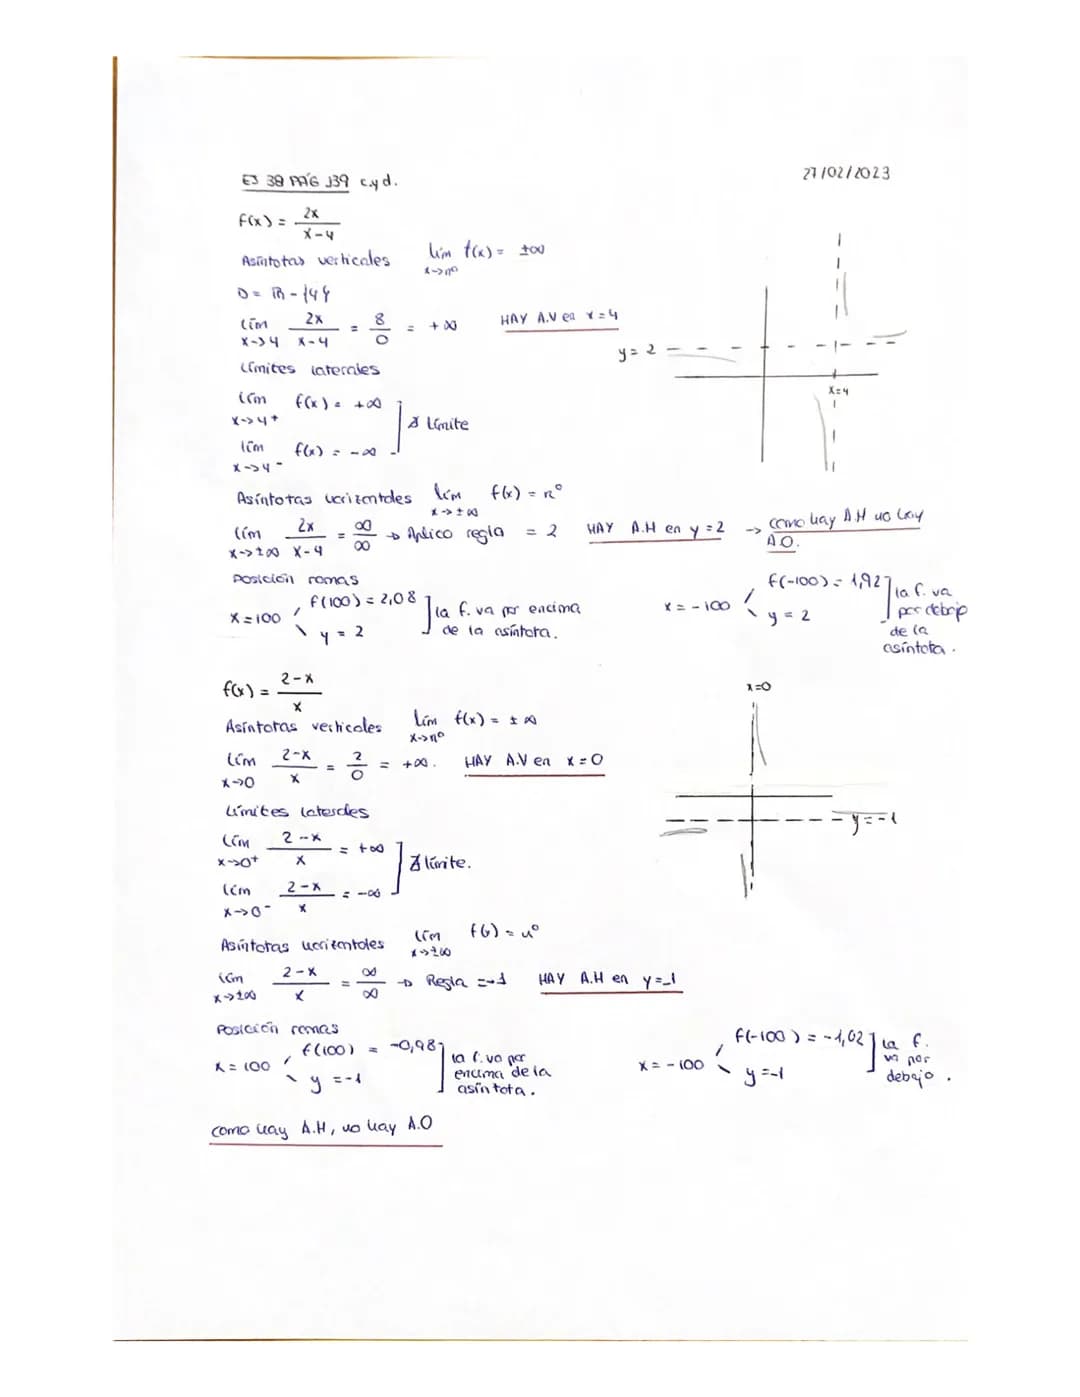 EJ 38 PÁG 139 c.y d.
27/02/2023
f(x) = 2x / x-4
Asíntotas verticales lím f(x) = ±∞
x->nº
D = R - {4}
lím 2x / x-4 = 8/0 = +∞ HAY A.V en x=4
x->4
Límites laterales
lím f(x) = +∞
x->4+
lím f(x) = -∞
x->4-
∄ Límite
y = 2
x=4
Asíntotas horizontales lím f(x) = nº
x->±∞
lím 2x / x-4 = ∞/∞ → Aplico regla = 2 HAY A.H en y=2 → como hay A.H no hay A.O.
x->±∞
Posición ramas
x=100 f(100) = 2,08
y = 2
la f. va por encima
de la asíntota.
x = -100 f(-100) = 1,92
y = 2
la f. va
por debajo
de la
asíntota.
f(x) = 2-x / x
Asíntotas verticales lím f(x) = ±∞
x->nº
lím 2-x / x = 2/0 = +∞. HAY A.V en x=0
x->0
Límites laterales
lím 2-x / x = +∞
x->0+
lím 2-x / x = -∞
x->0-
∄ límite.
x=0
y=-1
Asíntotas horizontales lím f(x) = nº
x->±∞
lím 2-x / x = ∞/∞ → Regla =-1 HAY A.H en y=-1
x->±∞
Posición ramas
x = 100 f(100) = -0,98
y =-1
la f. va por
encima de la
asíntota.
x = -100 f(-100) = -1,02
y =-1
la f.
va por
debajo.
como hay A.H, no hay A.O